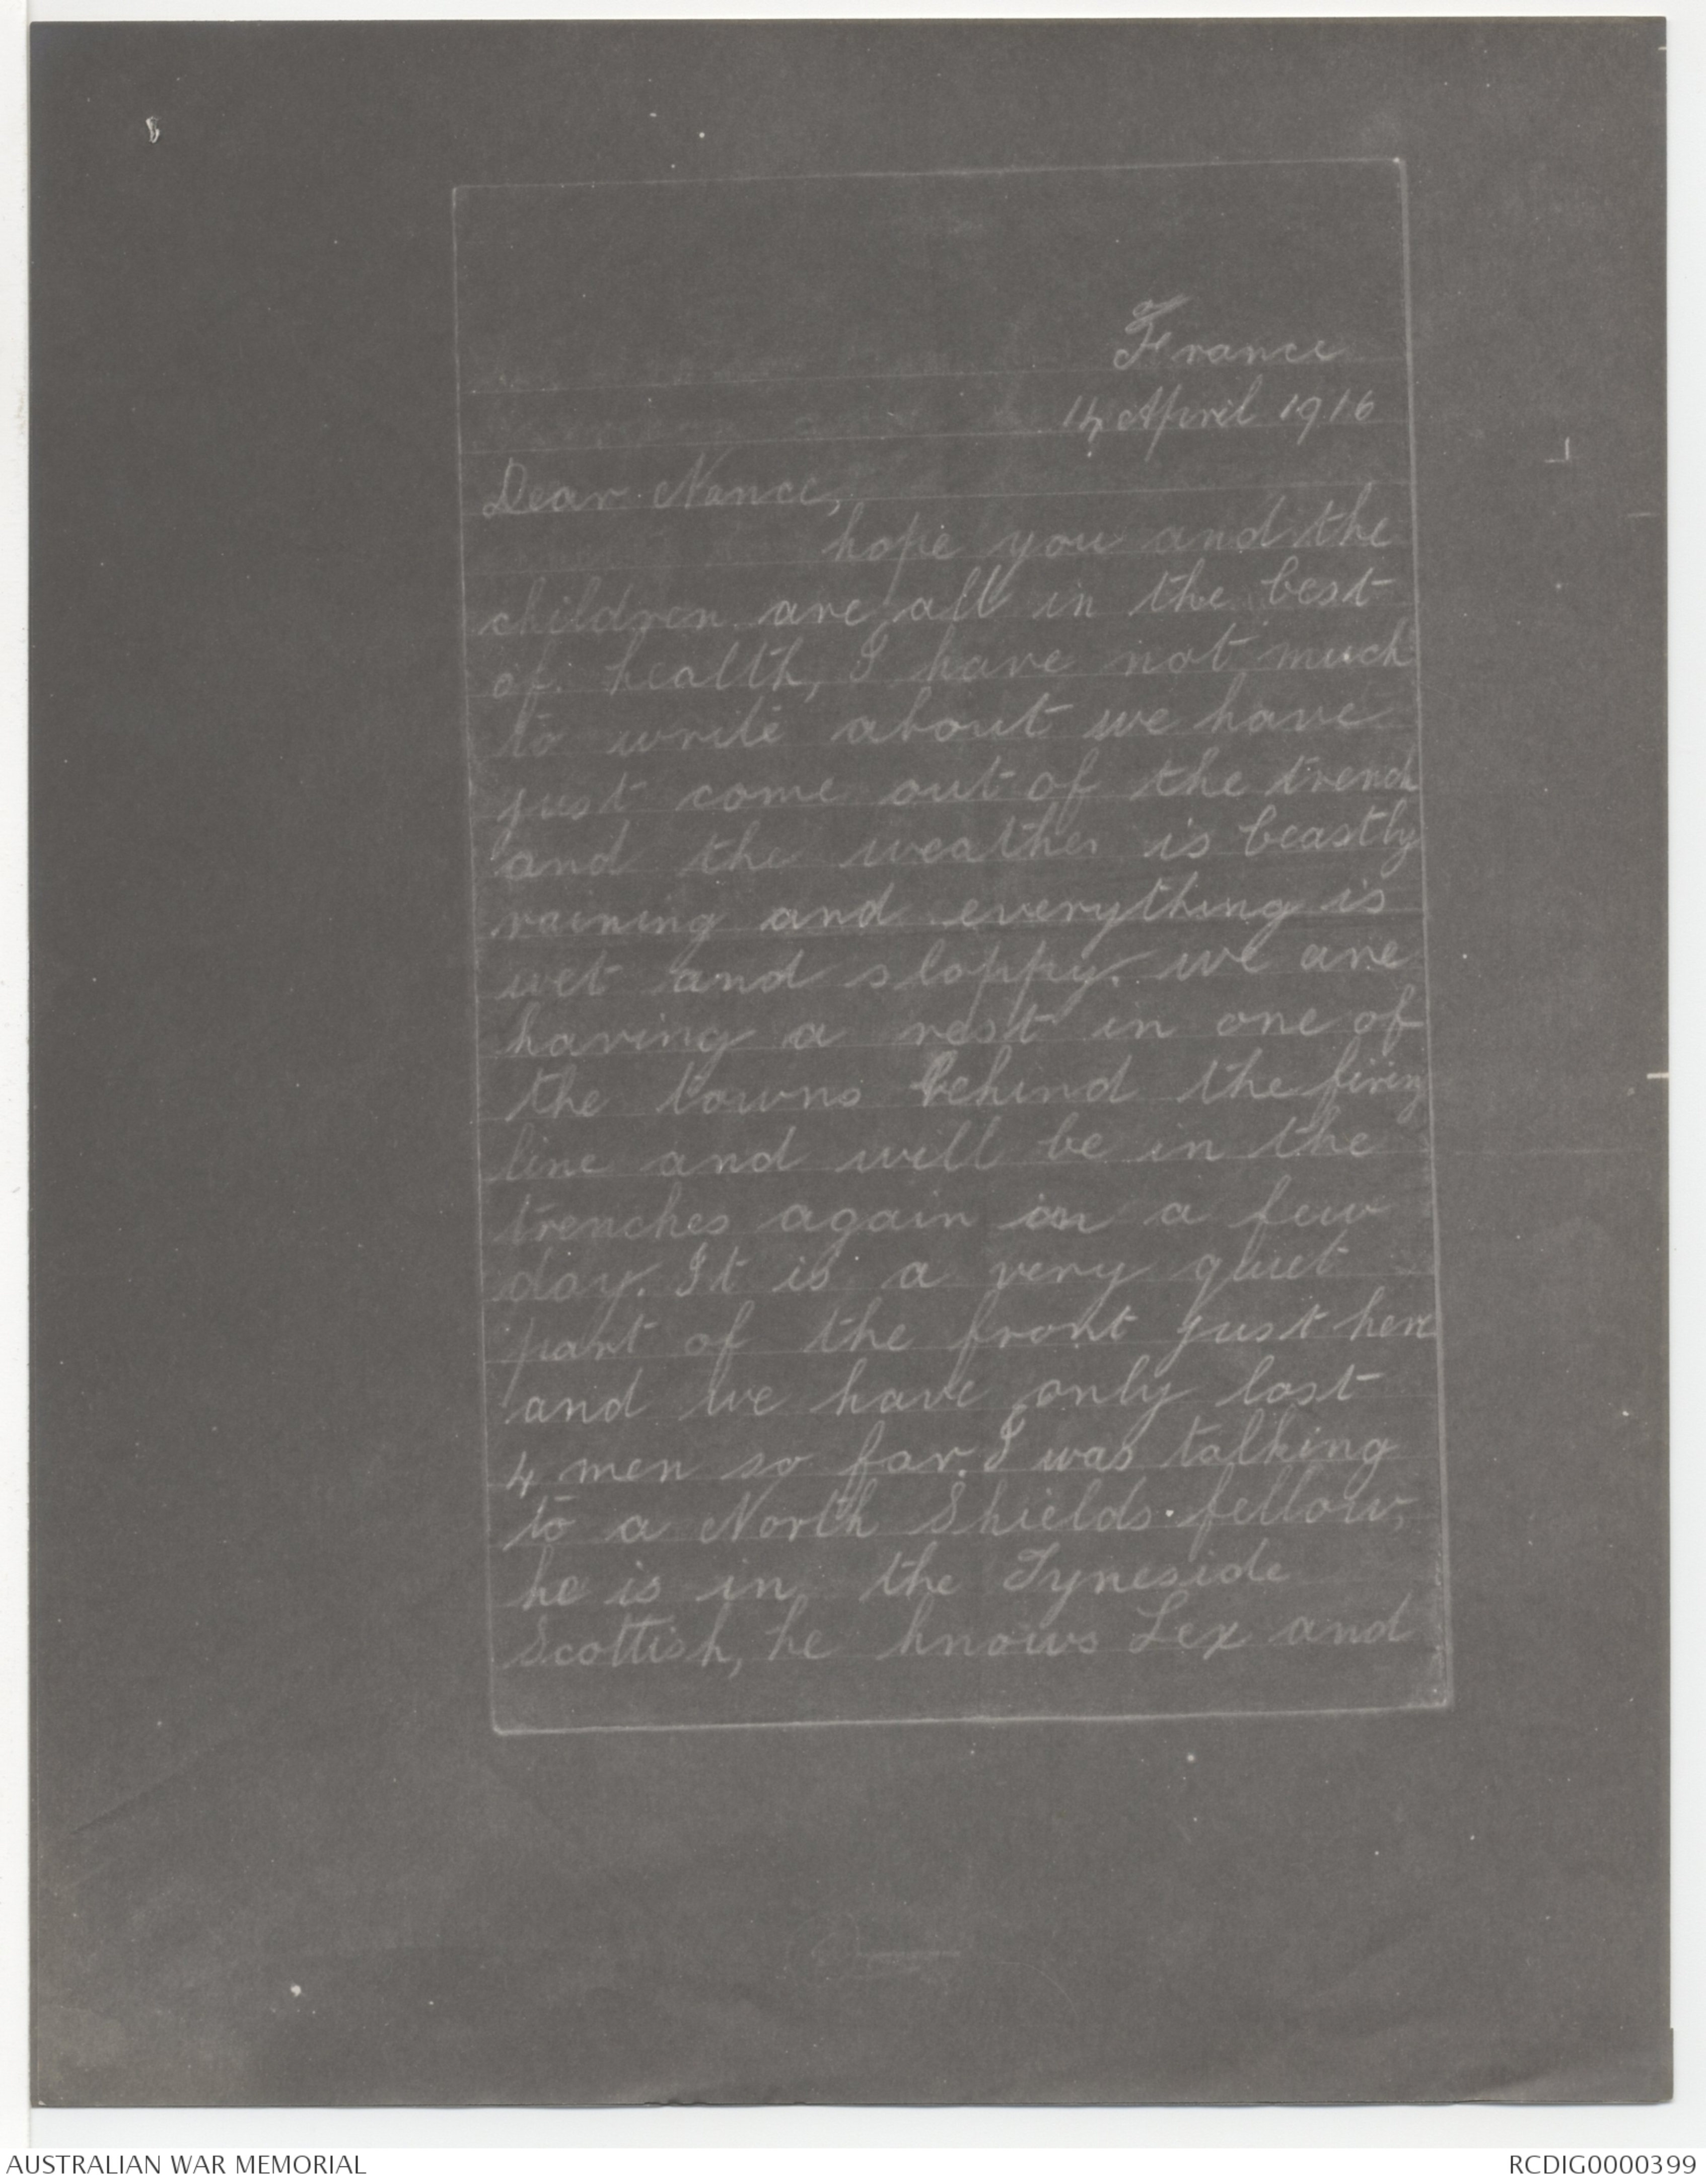 France
14 April 1916
Dear Nance,
hope you and the
children are all in the best
of health, I have not much
to write about we have
just come out of the trench
and the weather is beastly
raining and everything is
wet and sloppy. we are
having a rest in one of
the towns behind the firing
line and will be in the
trenches again in a few
day. It is a very quiet
part of the front just here
and we have only lost
4 men so far. I was talking
to a North Shields fellow,
he is in the Tyneside
Scottish, he knows Lex and
AUSTRALIAN WAR MEMORIAL
RCDIG0000399